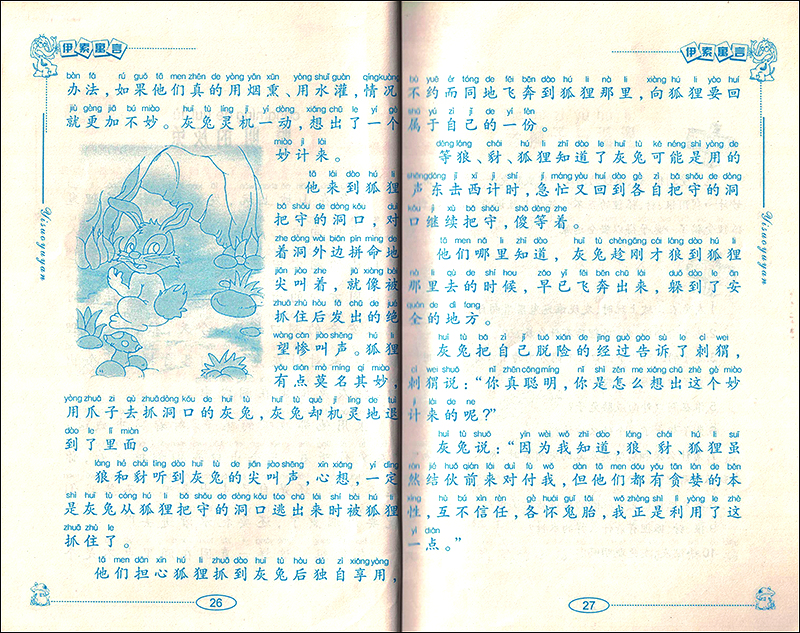 伊索寓言
bàn fǎ rú guǒ tā men zhēn de yòng yān xūn yòng shuǐ guàn qíng kuàng
办法，如果他们真的用烟熏、用水灌，情况
jiù gèng jiā bú miào huī tù líng jī yí dòng xiǎng chū le yí gè
就更加不妙。灰兔灵机一动，想出了一个
miào jì lái
妙计来。
tā lái dào hú li
他来到狐狸
bǎ shǒu de dòng kǒu duì
把守的洞口，对
zhe dòng wài bian pīn mìng de
着洞外边拼命地
jiān jiào zhe jiù xiàng bèi
尖叫着，就像被
zhuā zhù hòu fā chū de jué
抓住后发出的绝
wàng cǎn jiào shēng hú li
望惨叫声。狐狸
yǒu diǎn mò míng qí miào
有点莫名其妙，
yòng zhuǎ zi qù zhuā dòng kǒu de huī tù huī tù què jī líng de tuì
用爪子去抓洞口的灰兔，灰兔却机灵地退
dào le lǐ miàn
到了里面。
láng hé chái tīng dào huī tù de jiān jiào shēng xīn xiǎng yí dìng
狼和豺听到灰兔的尖叫声，心想，一定
shì huī tù cóng hú li bǎ shǒu de dòng kǒu táo chū lái shí bèi hú li
是灰兔从狐狸把守的洞口逃出来时被狐狸
zhuā zhù le
抓住了。
tā men dān xīn hú li zhuā dào huī tù hòu dú zì xiǎng yòng
他们担心狐狸抓到灰兔后独自享用，
Yisuoyuyan
26
伊索寓言
bù yuē ér tóng de fēi bēn dào hú li nà li xiàng hú li yào huí
不约而同地飞奔到狐狸那里，向狐狸要回
shǔ yú zì jǐ de yí fèn
属于自己的一份。
děng láng chái hú li zhī dào le huī tù kě néng shì yòng de
等狼、豺、狐狸知道了灰兔可能是用的
shēng dōng jī xī jì shí jí máng yòu huí dào gè zì bǎ shǒu de dòng
声东击西计时，急忙又回到各自把守的洞
kǒu jì xù bǎ shǒu shǎ děng zhe
口继续把守，傻等着。
tā men nǎ li zhī dào huī tù chèn gāng cái láng dào hú li
他们哪里知道，灰兔趁刚才狼到狐狸
nà li qù de shí hou zǎo yǐ fēi bēn chū lái duǒ dào le ān
那里去的时候，早已飞奔出来，躲到了安
quán de dì fang
全的地方。
huī tù bǎ zì jǐ tuō xiǎn de jīng guò gào sù le cì wei
灰兔把自己脱险的经过告诉了刺猬，
cì wei shuō nǐ zhēn cōng míng nǐ shì zěn me xiǎng chū zhè gè miào
刺猬说：“你真聪明，你是怎么想出这个妙
jì lái de ne
计来的呢？”
huī tù shuō yīn wèi wǒ zhī dào láng chái hú li suī
灰兔说：“因为我知道，狼、豺、狐狸虽
rán jié huǒ qián lái duì fù wǒ dàn tā men dōu yǒu tān lán de běn
然结伙前来对付我，但他们都有贪婪的本
xìng hù bú xìn rèn gè huái guǐ tāi wǒ zhèng shì lì yòng le zhè
性，互不信任，各怀鬼胎，我正是利用了这
yì diǎn
一点。”
Yisuoyuyan
27